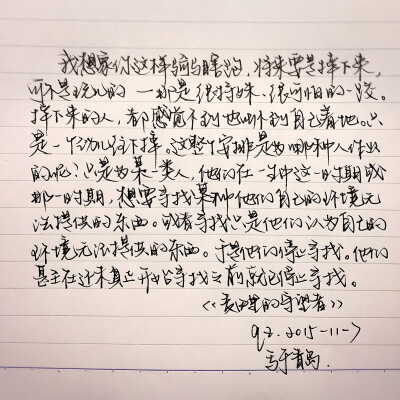 我想象你这样骑马瞎跑，将来要是摔下来，
可不是玩儿的—那是很特殊、很可怕的一跤。
摔下来的人，都感觉不到也听不到自己着地。只
是一个劲儿往下摔。这整个安排是为哪种人作出
的呢？只是为某一类人，他们在一生中这一时期或
那一时期，想要寻找某种他们自己的环境无
法提供的东西。或者寻找只是他们认为自己的
环境无法提供的东西。于是他们停止寻找。他们
甚至在还未真正开始寻找之前就已停止寻找。
《麦田里的守望者》
qz.2015-11-7
写于青岛.